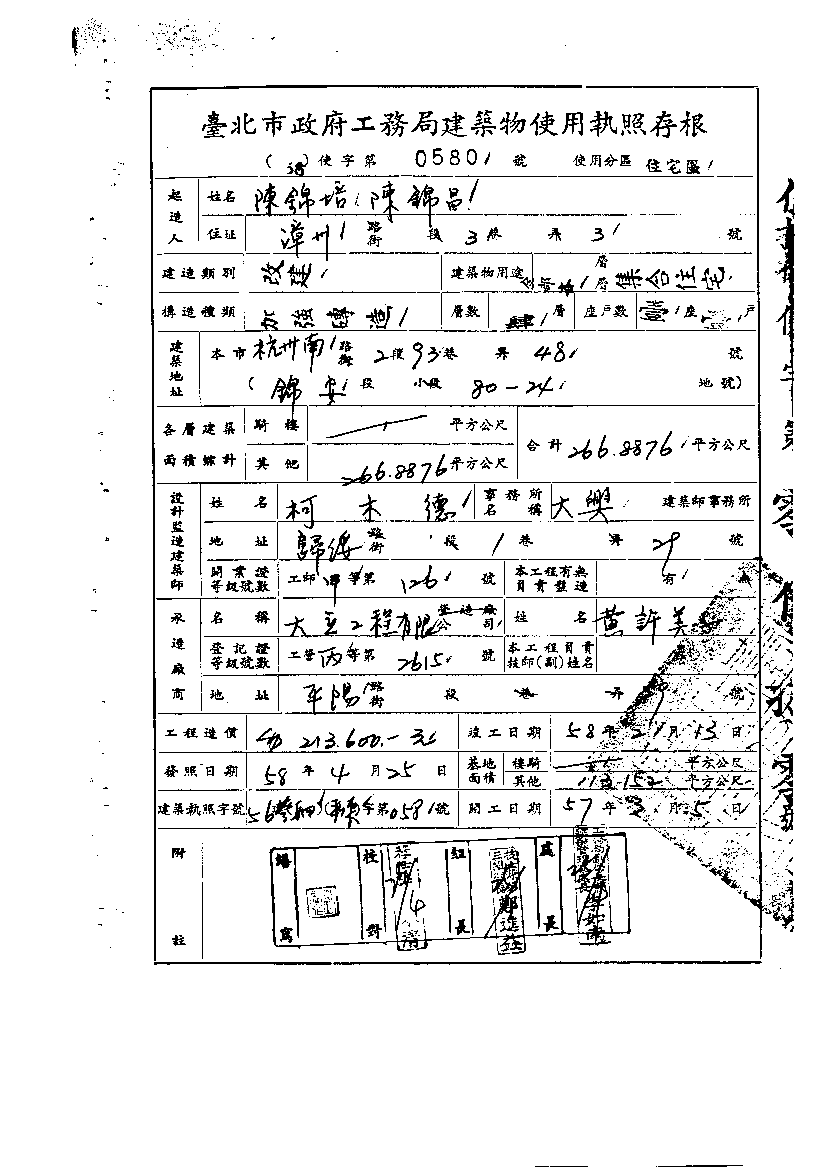 臺北市政府工務局建築物使用執照存根
( ) 使字第 0580 號 使用分區 住宅區
起造人 姓名 陳錦培 陳錦昌
住址 漳州 路街 段 3 巷 弄 3 號
建造類別 改建 建築物用途 層 層 集合住宅
構造種類 加強磚造 層數 肆 層 座戶數 壹 座 戶
建築地址 本市 杭州南 路街 2 段 93 巷 弄 48 號
( 錦安 段 小段 80-24 地號)
各層建築面積總計 騎樓 平方公尺 合計 266.8876 平方公尺
其他 266.8876 平方公尺
設計監造建築師 姓名 柯木德 事務所名稱 大興 建築師事務所
地址 歸綏 路街 段 1 巷 弄 29 號
開業證等級號數 工師 甲 等第 126 號 本工程有無負責監造 有 無
承造廠商 名稱 大立工程有限 營造廠公司 姓名 黃許美
登記證等級號數 工營 丙 等第 2615 號 本工程負責技師(副)姓名
地址 平陽 路街 段 巷 弄 9 號
工程造價 213.600.- 竣工日期 58 年 2 月 13 日
發照日期 58 年 4 月 25 日 基地面積 樓騎 平方公尺
其他 113.152 平方公尺
建築執照字號 56 字第 0581 號 開工日期 57 年 3 月 5 日
附註
繕寫 校對 組長 處長